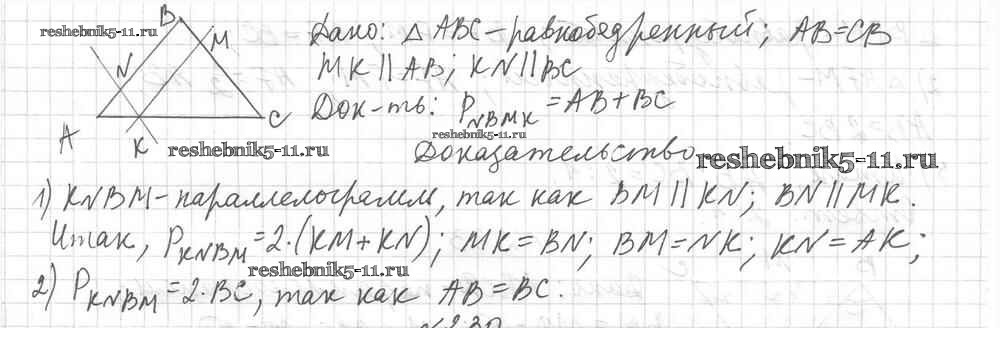 B
reshebnik5-11.ru
M
N
A
C
K
reshebnik5-11.ru
Дано: △ ABC – равнобедренный; AB=CB
MK || AB; KN || BC
Док-ть: P_NBMK = AB+BC
reshebnik5-11.ru
Доказательство
reshebnik5-11.ru
1) KNBM – параллелограмм, так как BM || KN; BN || MK.
Итак, P_KNBM = 2·(KM+KN); MK=BN; BM=NK; KN=AK;
reshebnik5-11.ru
2) P_KNBM = 2·BC, так как AB=BC.